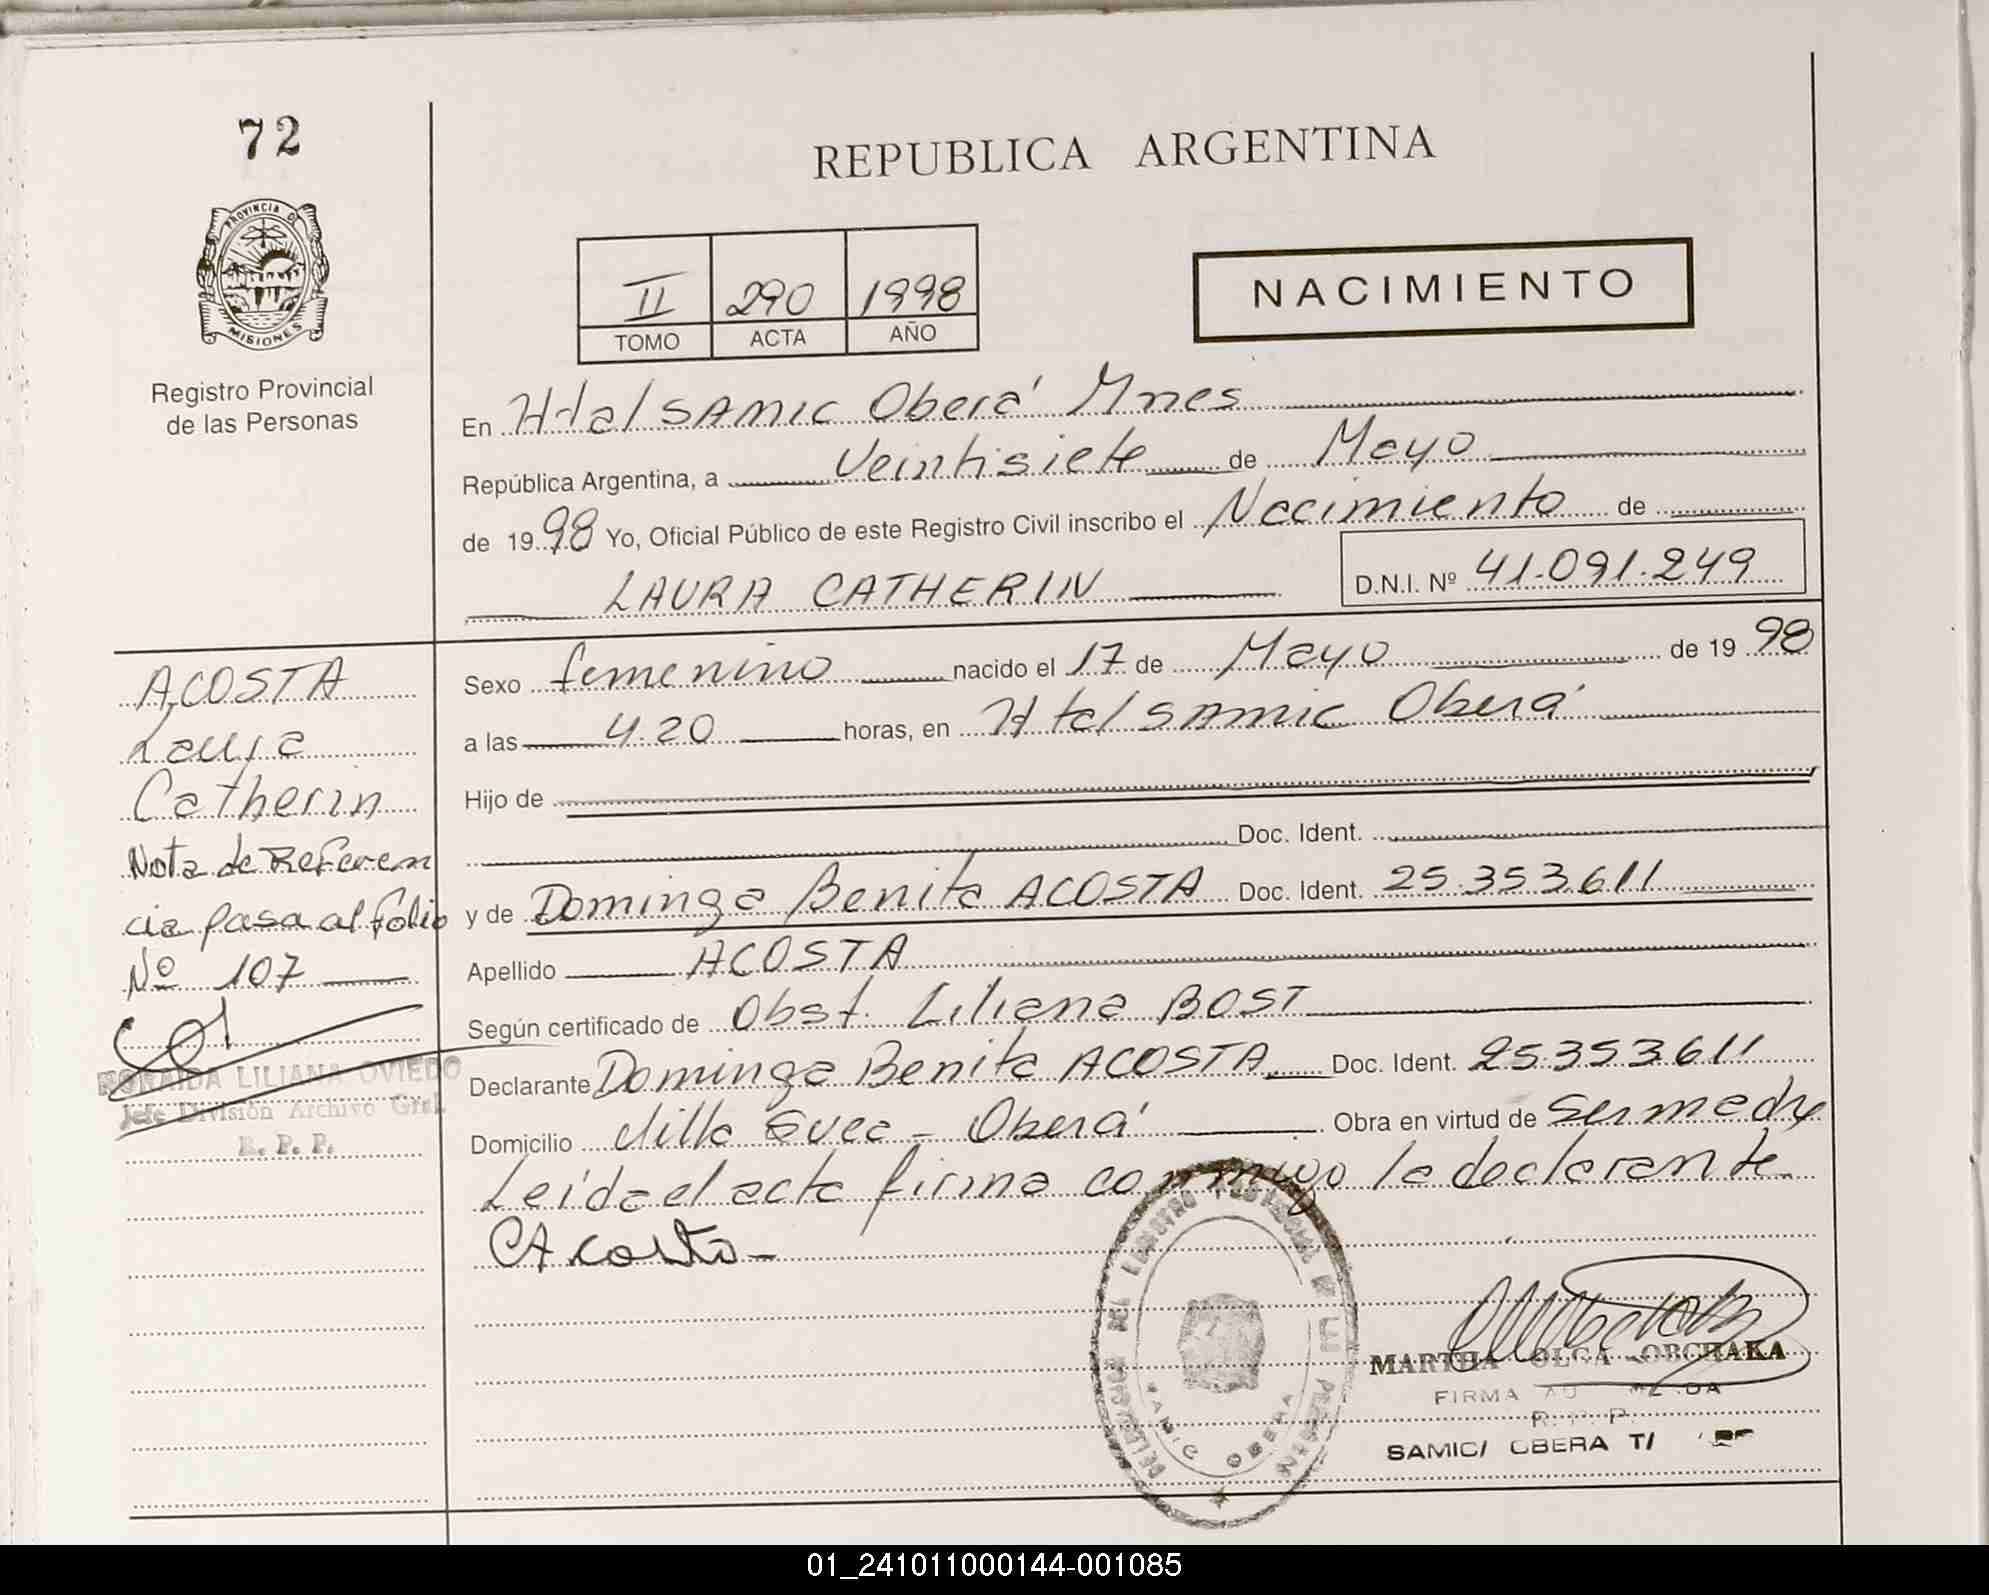 72
REPUBLICA ARGENTINA
PROVINCIA DE
MISIONES
Registro Provincial
de las Personas
II 290 1998
TOMO ACTA AÑO
NACIMIENTO
En Htal SAMIC Oberá Mnes
República Argentina, a Veintisiete de Mayo
de 1998 Yo, Oficial Público de este Registro Civil inscribo el Nacimiento de
LAURA CATHERIN D.N.I. Nº 41.091.249
ACOSTA
Laura
Catherin
Nota de Referen
cia pasa al folio
Nº 107
LILIANA OVIEDO
Jefe División Archivo Gral.
R. P. P.
Sexo femenino nacido el 17 de Mayo de 1998
a las 4.20 horas, en Htal SAMIC Oberá
Hijo de
Doc. Ident.
y de Dominga Benita ACOSTA Doc. Ident. 25.353.611
Apellido ACOSTA
Según certificado de Obst. Liliana BOST
Declarante Dominga Benita ACOSTA Doc. Ident. 25.353.611
Domicilio Villa - Oberá Obra en virtud de Ser madre
Leída el acta firma conmigo la declarante
Acosta
DELEGACION DEL REGISTRO PROVINCIAL DE LAS PERSONAS
SAMIC OBERA
MARTHA OLGA OBCHAKA
FIRMA
R. P. P.
SAMIC/ OBERA
01_241011000144-001085